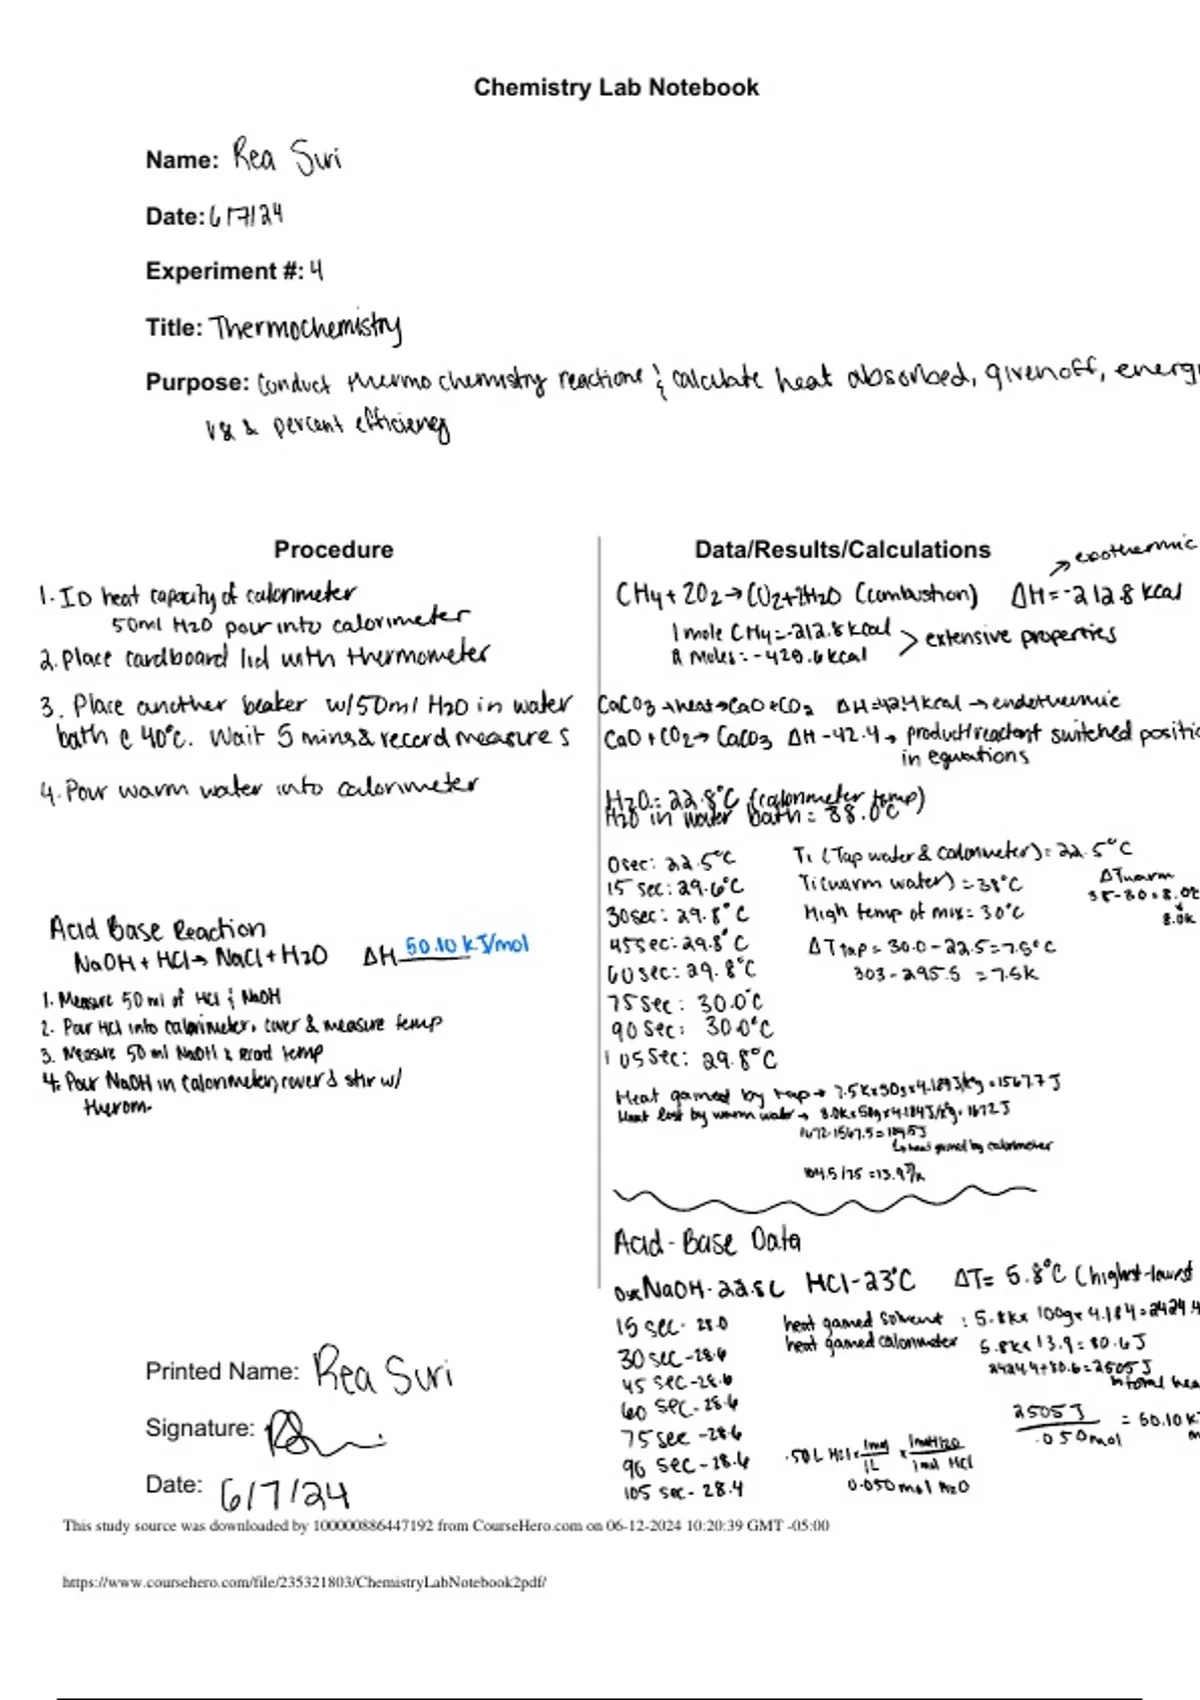 Chemistry Lab Notebook
Name: Rea Suri
Date: 6/7/24
Experiment #: 4
Title: Thermochemistry
Purpose: Conduct thermochemistry reactions & calculate heat absorbed, given off, energy
& percent efficiency
Procedure
1. ID heat capacity of calorimeter
50ml H2O pour into calorimeter
2. Place cardboard lid with thermometer
3. Place another beaker w/50ml H2O in water
bath @ 40°C. Wait 5 mins & record measures
4. Pour warm water into calorimeter
Acid Base Reaction
NaOH + HCl → NaCl + H2O ΔH 50.10 kJ/mol
1. Measure 50 ml of HCl & NaOH
2. Pour HCl into calorimeter, cover & measure temp
3. Measure 50 ml NaOH & record temp
4. Pour NaOH in calorimeter, cover & stir w/
therom.
Data/Results/Calculations
→ exothermic
CH4 + 2O2 → CO2 + 2H2O (combustion) ΔH = -212.8 kcal
1 mole CH4 = -212.8 kcal
2 moles = -429.6 kcal > extensive properties
CaCO3 + heat → CaO + CO2 ΔH = 42.4 kcal → endothermic
CaO + CO2 → CaCO3 ΔH -42.4 → product/reactant switched positio
in equations
H2O = 22.8°C (calorimeter temp)
H2O in water bath = 38.0°C
0 sec: 22.5°C
15 sec: 29.6°C
30 sec: 29.8°C
45 sec: 29.8°C
60 sec: 29.8°C
75 sec: 30.0°C
90 sec: 30.0°C
105 sec: 29.8°C
Ti (Tap water & calorimeter) = 22.5°C
Ti (warm water) = 38°C
High temp of mix = 30°C
ΔT tap = 30.0 - 22.5 = 7.5°C
303 - 295.5 = 7.5K
ΔTwarm
38-30 = 8.0°C
8.0K
Heat gained by tap → 7.5K x 50g x 4.184J/kg = 1567.7 J
Heat lost by warm water → 8.0K x 50g x 4.184 J/kg = 1672 J
1672-1567.5 = 104.5J
↳ heat gained by calorimeter
104.5/7.5 = 13.9 J/K
Acid-Base Data
0sec NaOH-22.8C HCl-23°C ΔT = 5.8°C (highest-lowest
15 sec- 28.0
30 sec-28.6
45 sec-28.6
60 sec-28.6
75 sec -28.6
90 sec-28.6
105 sec- 28.4
heat gained solvent : 5.8K x 100g x 4.184 = 2424.4
heat gained calorimeter 5.8K x 13.9 = 80.6J
2424.4+80.6 = 2505 J
total hea
2505J / .050mol = 50.10 k
.50L HCl x 1mol/1L x 1mol H2O/1mol HCl
0.050 mol H2O
Printed Name: Rea Suri
Signature:
Date: 6/7/24
This study source was downloaded by 100000886447192 from CourseHero.com on 06-12-2024 10:20:39 GMT -05:00
https://www.coursehero.com/file/235321803/ChemistryLabNotebook2pdf/